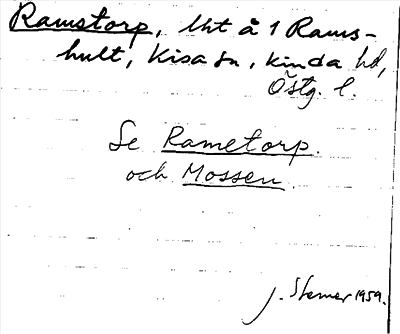 Ramstorp, lht å 1 Rams-
hult, Kisa sn, Kinda hd,
Östg. l.
Se Rametorp.
och Mossen.
J. Sterner 1959.